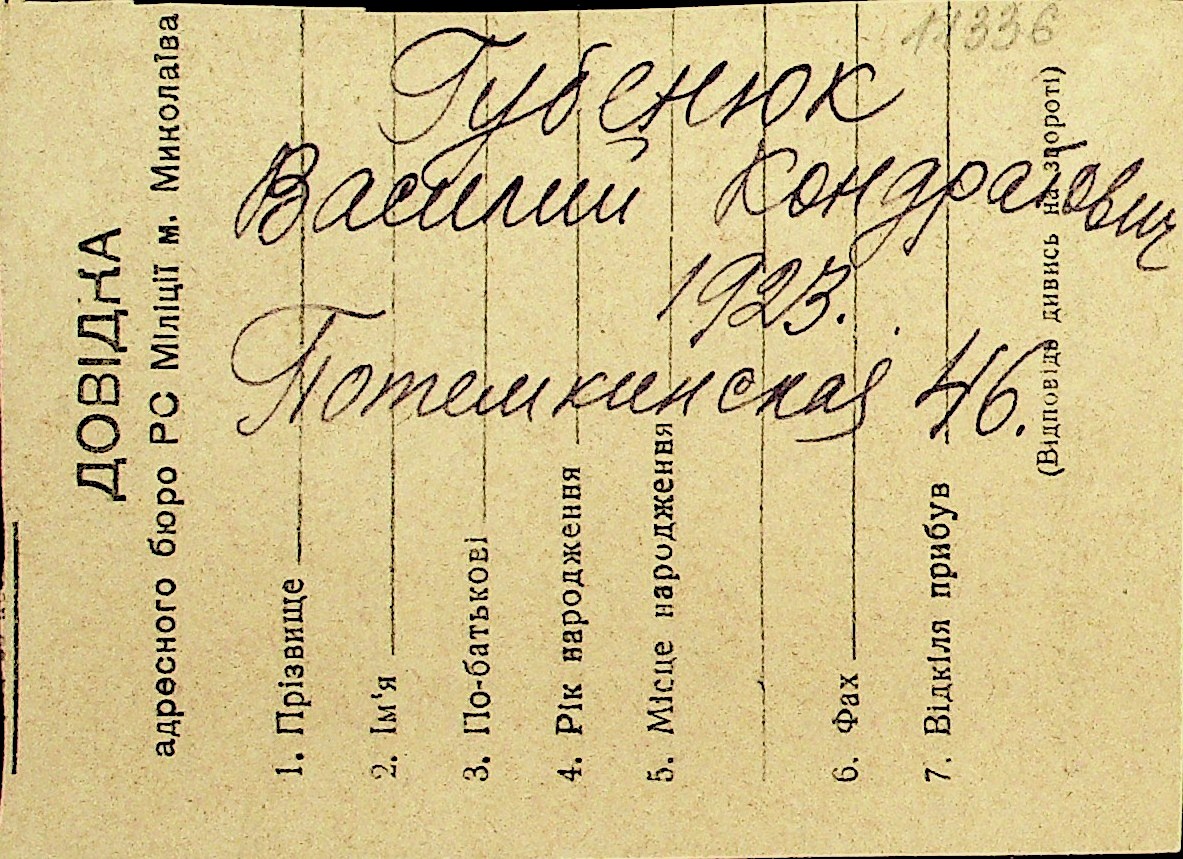 11336
Губенюк
Василий Кондратович
1923.
Потемкинская 46.
ДОВІДКА
адресного бюро РС Міліції м. Миколаїва
1. Прізвище
2. Ім'я
3. По-батькові
4. Рік народження
5. Місце народження
6. Фах
7. Відкіля прибув
(Відповідь дивись на звороті)